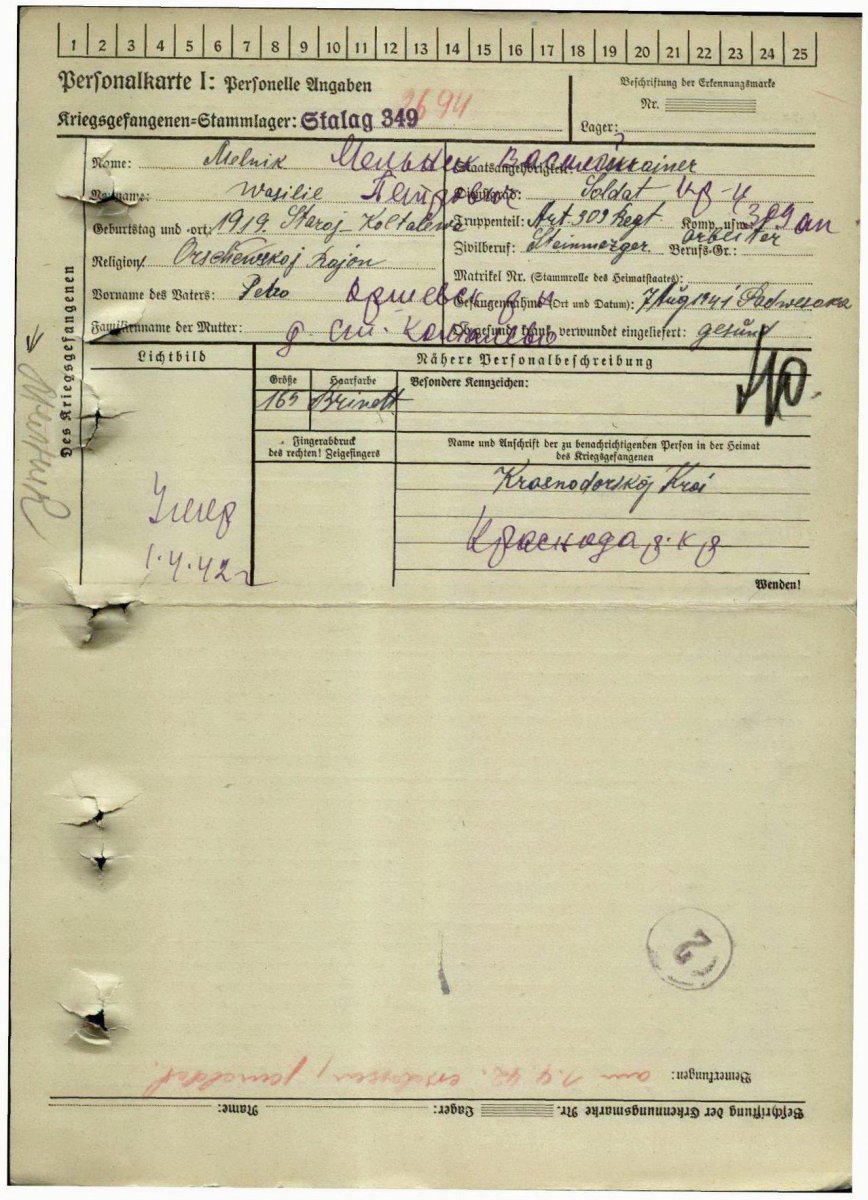 1 2 3 4 5 6 7 8 9 10 11 12 13 14 15 16 17 18 19 20 21 22 23 24 25
Personalkarte I: Personelle Angaben
Beschriftung der Erkennungsmarke
Nr.
Kriegsgefangenen-Stammlager: Stalag 349
Lager:
Des Kriegsgefangenen
Name: Melnik Мельник Василий
Staatsangehörigkeit: Ukrainer
Vorname: Wasilie Петрович
Dienstgrad: Soldat кр-ц
Geburtstag und -ort: 1919. Staroj Koltalewo
Truppenteil: Art. 309 Regt Komp. usw.: 309 ап
Religion: Orschewskoj Rajon
Zivilberuf: Steinmezger Berufs-Gr.: arbeiter
Matrikel Nr. (Stammrolle des Heimatstaates):
Vorname des Vaters: Petro
Gefangennahme (Ort und Datum): 7 Aug 1941
Familienname der Mutter:
Ob gesund, krank, verwundet eingeliefert: gesund
р-н
д. ст.
Lichtbild
Nähere Personalbeschreibung
Größe Haarfarbe Besondere Kennzeichen:
165 Brinett
Fingerabdruck
des rechten! Zeigefingers
Name und Anschrift der zu benachrichtigenden Person in der Heimat
des Kriegsgefangenen
Krasnodorskoj Krai
Краснодар. к р
Умер
1.4.42 г
Wenden!
2
Bemerkungen: am 1.4.42. erschossen,
Beschriftung der Erkennungsmarke Nr. Lager: Name: